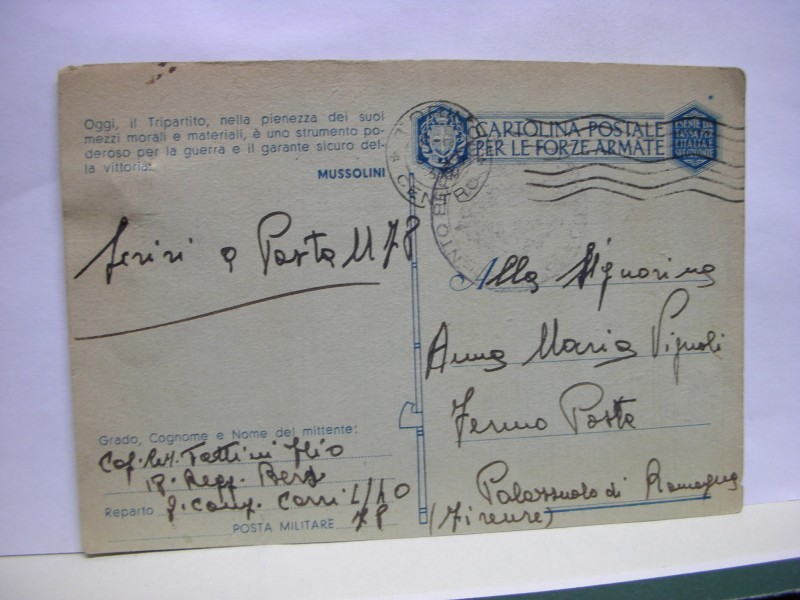 Oggi, il Tripartito, nella pienezza dei suoi
mezzi morali e materiali, è uno strumento po-
deroso per la guerra e il garante sicuro del-
la vittoria.
MUSSOLINI
CENTRO
CARTOLINA POSTALE
PER LE FORZE ARMATE
Scrivi a Posta M 78
Alla Signorina
Anna Maria Vignoli
Fermo Posta
Palazzuolo di Romagna
(Firenze)
Grado, Cognome e Nome del mittente:
Tattini
18. Regg. Bers.
Reparto 8. Comp. Carri L/40
POSTA MILITARE 78